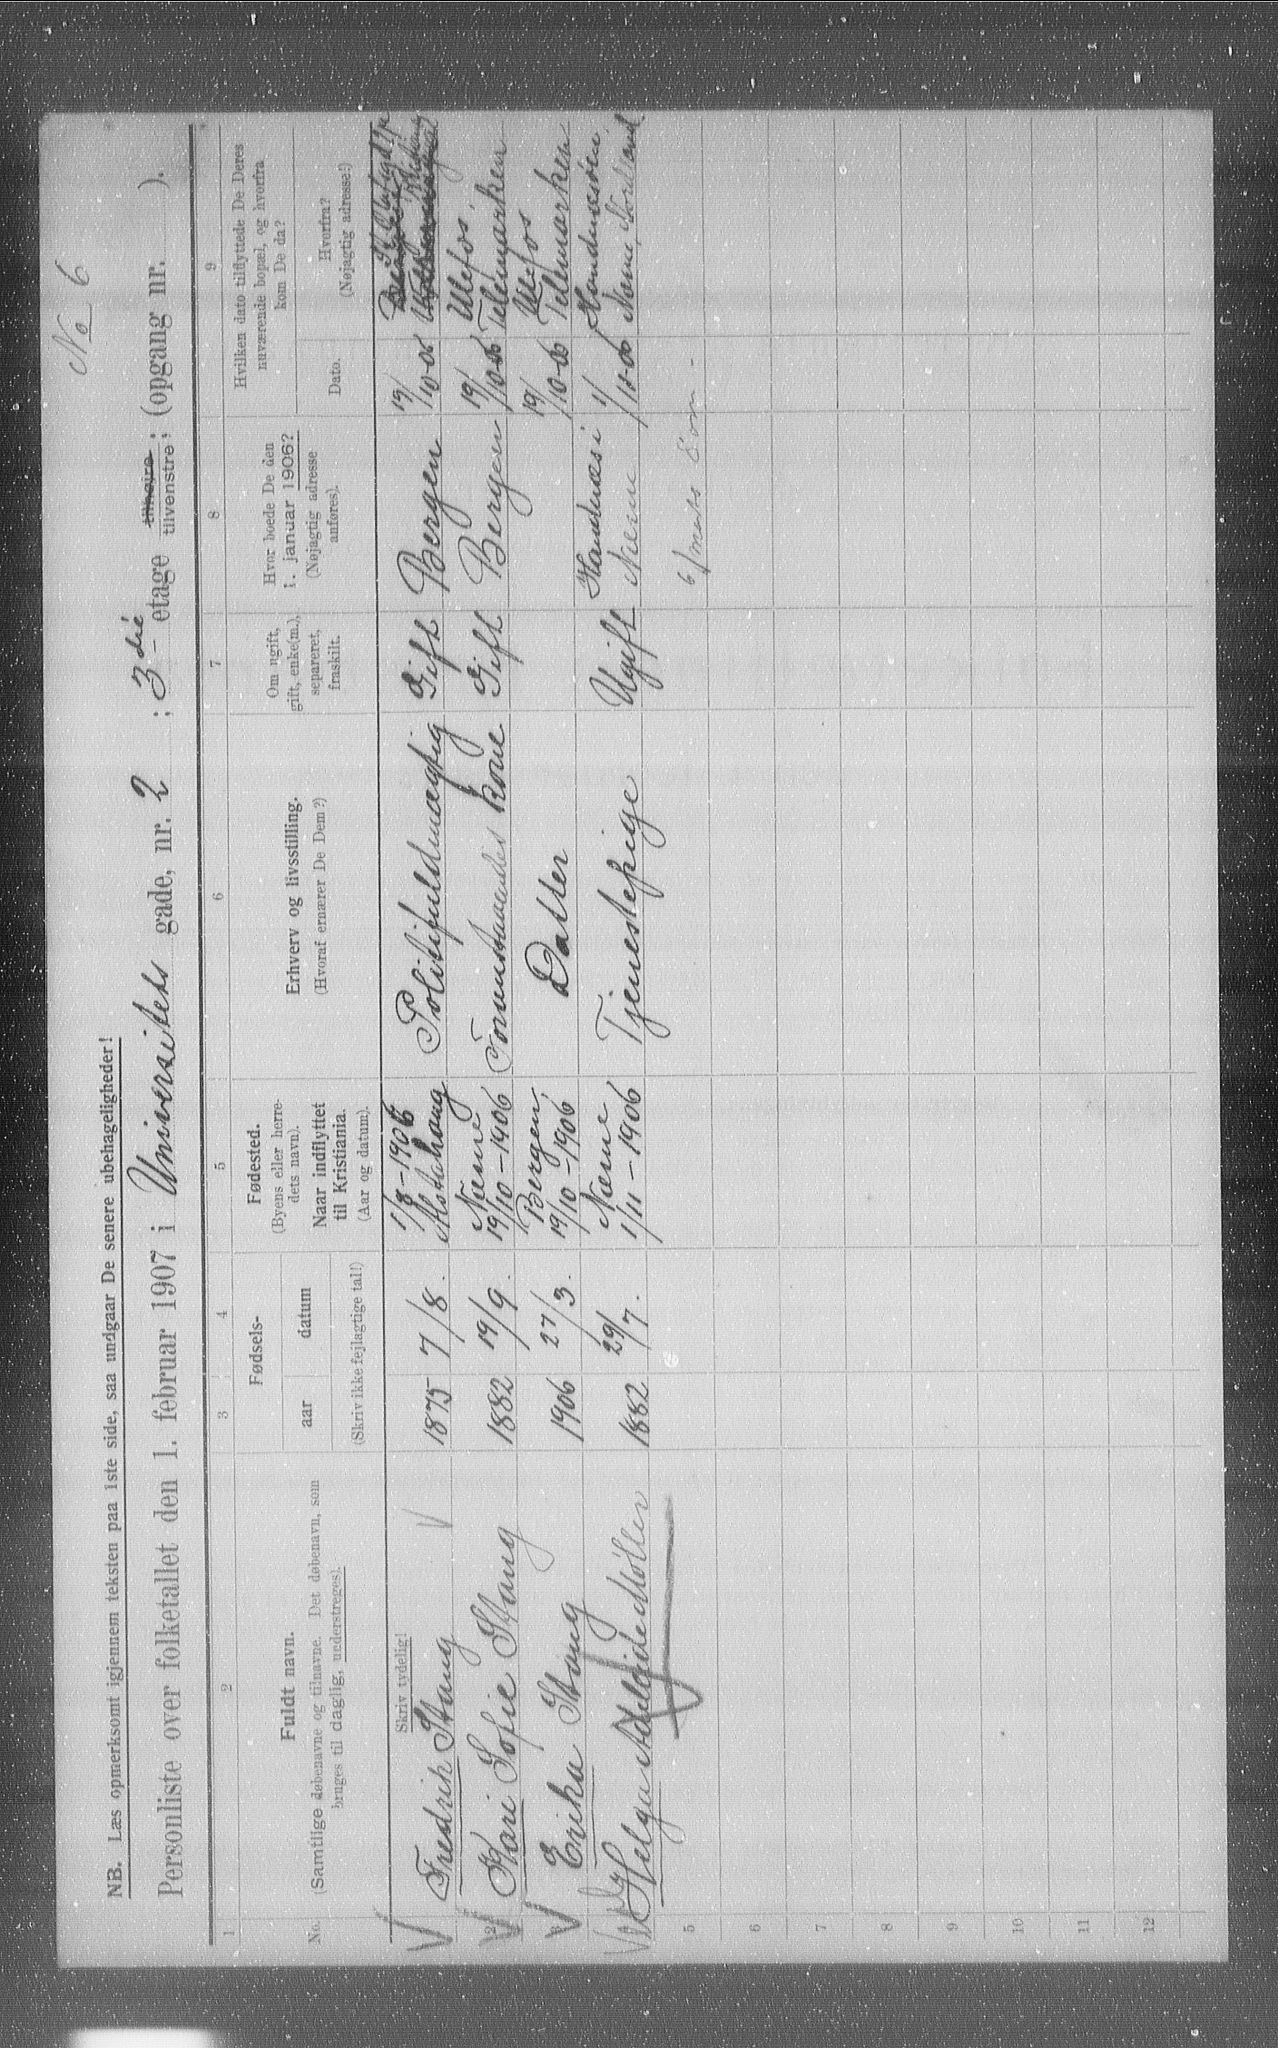 No 6
NB. Læs opmerksomt igjennem teksten paa 1ste side, saa undgaar De senere ubehageligheder!
Personliste over folketallet den 1. februar 1907 i Universitets gade, nr. 2 ; 3die etage tilhøjre, tilvenstre, (opgang nr. ).
1 2 3 4 5 6 7 8 9
No.
Fuldt navn.
(Samtlige døbenavne og tilnavne. Det døbenavn, som
bruges til daglig, understreges).
Skriv tydelig!
Fødsels-
aar datum
(Skriv ikke fejlagtige tal!)
Fødested.
(Byens eller herre-
dets navn).
Naar indflyttet
til Kristiania.
(Aar og datum).
Erhverv og livsstilling.
(Hvoraf ernærer De Dem?)
Om ugift,
gift, enke(m.),
separeret,
fraskilt.
Hvor boede De den
1. januar 1906?
(Nøjagtig adresse
anføres).
Hvilken dato tilflyttede De Deres
nuværende bopæl, og hvorfra
kom De da?
Dato.
Hvorfra?
(Nøjagtig adresse!)
Fredrik Stang 1875 7/8. 1/8-1906 Alstahoug Politifuldmægtig Gift Bergen 19/10-06
2 Kari Sofie Stang 1882 19/9. Næmne 19/10-1906 kone Gift Bergen 19/10-06 Ulefos, Telemarken
3 Erika Stang 1906 27/3. Bergen, 19/10-1906 Datter 19/10-06 Ulefos Telemarken
Helga Adelaide Møller 1882 29/7. Næmne 1/11-1906 Tjenestepige Ugift Handnæs i 1/11-06
5
6
7
8
9
10
11
12